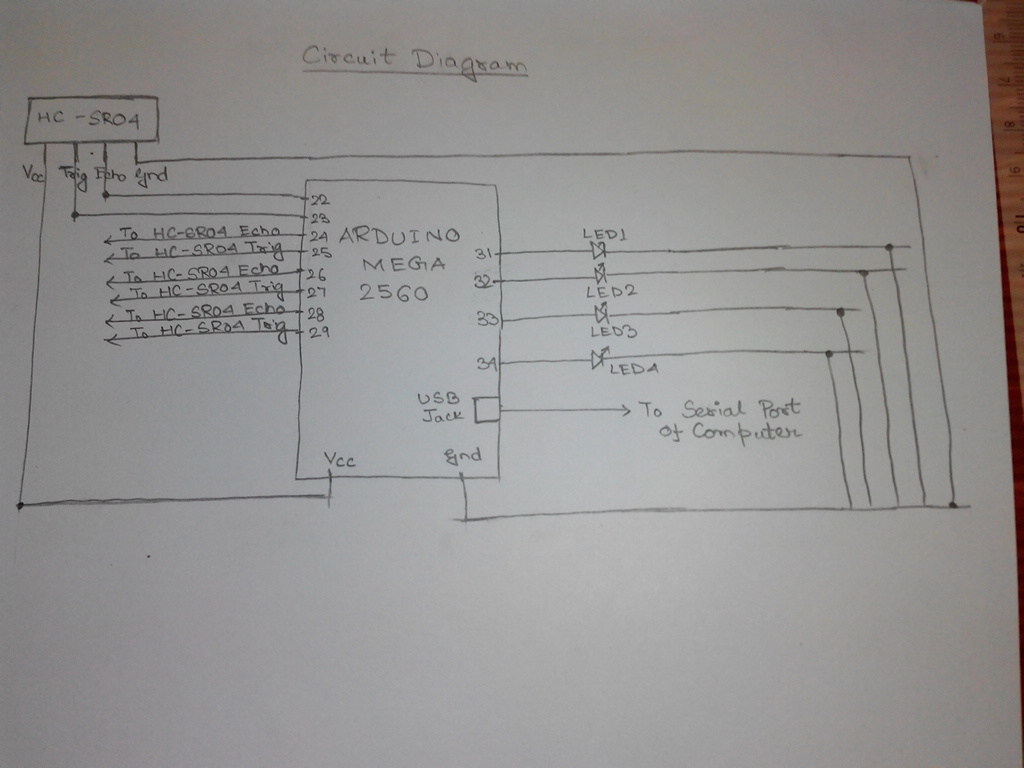 Circuit Diagram
HC-SR04
Vcc Trig Echo Gnd
22
23
To HC-SR04 Echo 24
To HC-SR04 Trig 25
To HC-SR04 Echo 26
To HC-SR04 Trig 27
To HC-SR04 Echo 28
To HC-SR04 Trig 29
ARDUINO
MEGA
2560
31 LED1
32 LED2
33 LED3
34 LED4
USB
Jack
To Serial Port
of Computer
Vcc Gnd